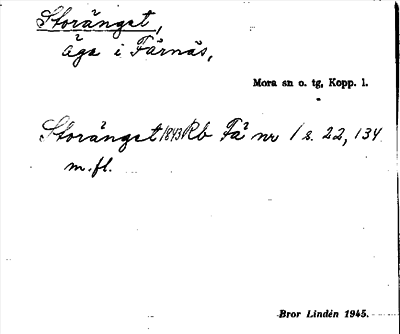 Storänget,
äga i Färnäs,
Mora sn o. tg, Kopp. l.
Storänget 1843 Rb Fä nr 1 s. 22, 134
m.fl.
Bror Lindén 1945.